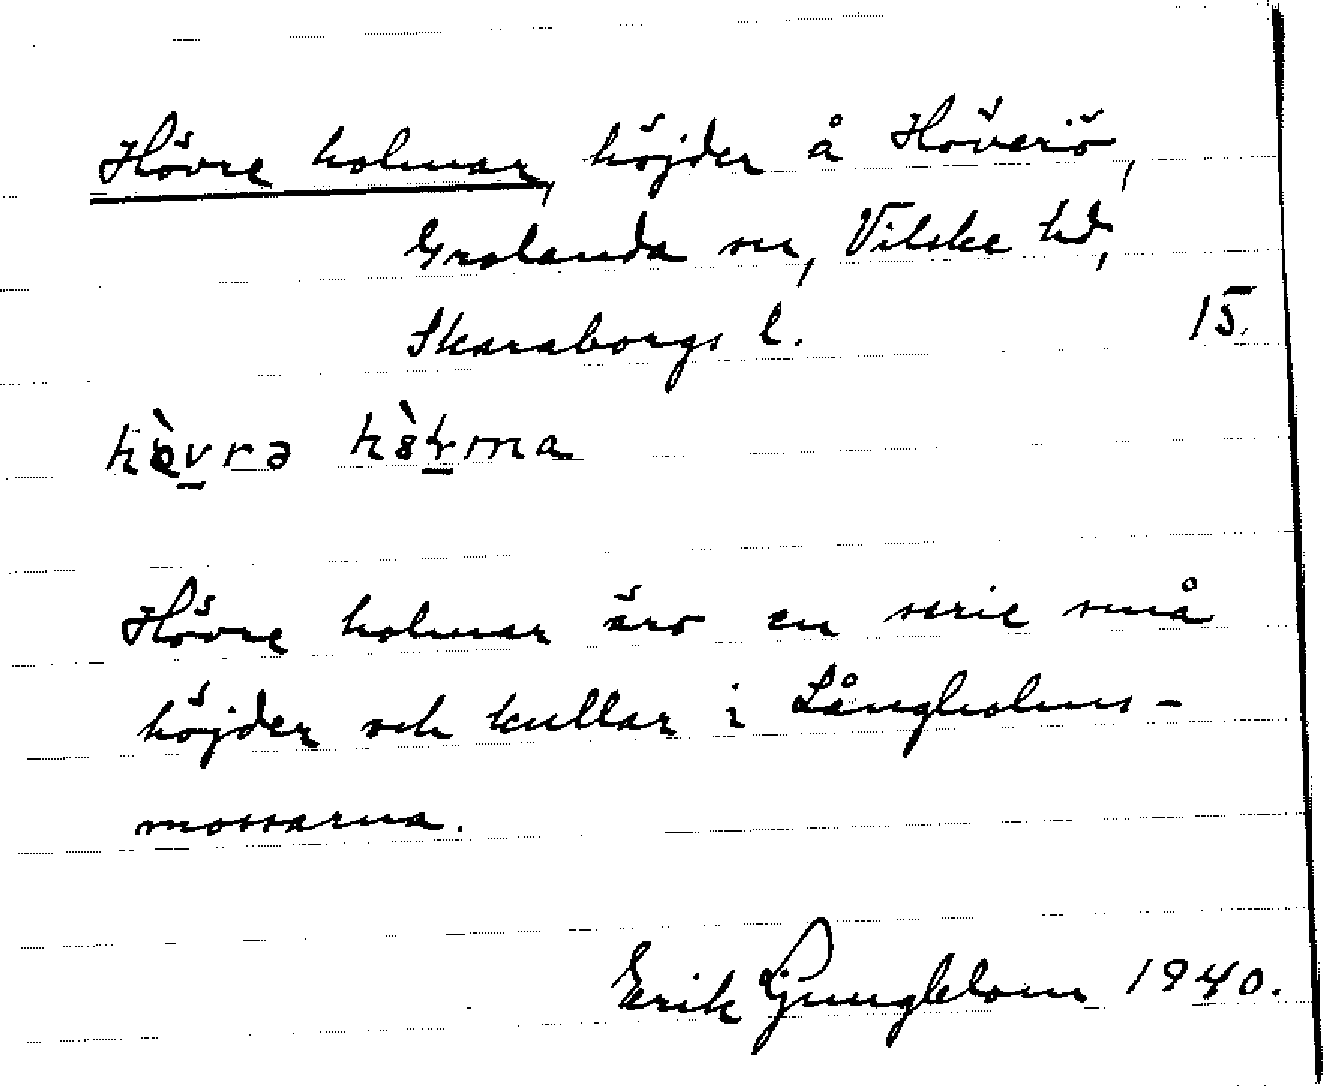 Hövre holmar, höjder å Höverö,
Grolanda sn, Vilske hd,
Skaraborgs l. 15.
Hövre holmar äro en serie små
höjder och kullar i Långholms-
mossarna.
Erik Ljungblom 1940.